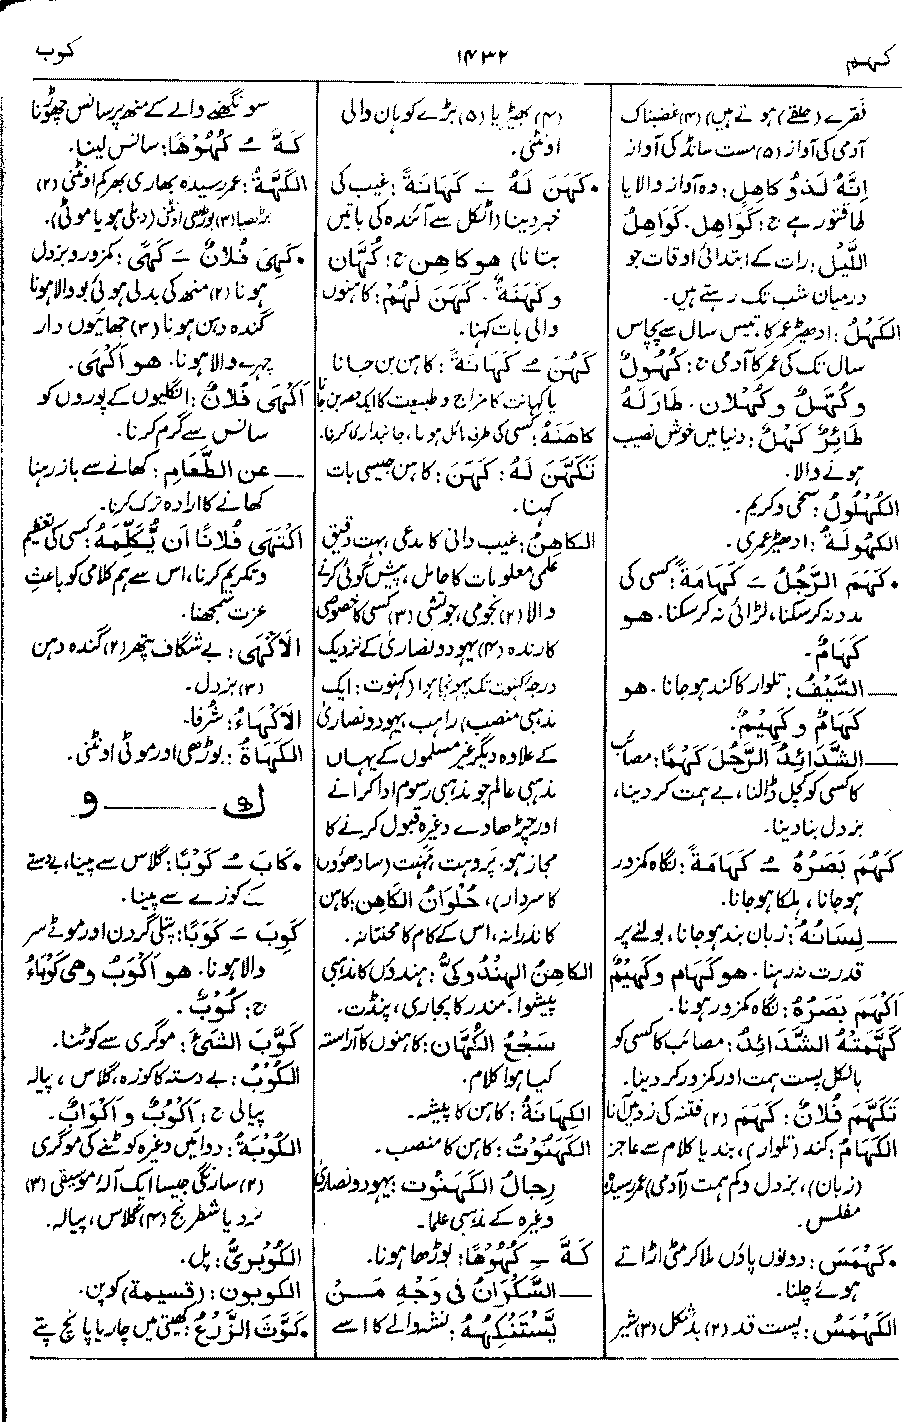 کہم
۱۴۳۲
کوب
فقرے (حلقے) ہوتے ہیں) (۳) غضبناک
آدمی کی آواز (۵) مست سانڈ کی آواز
إِنَّهُ لَذُو كَاهِلٍ: وہ آواز والا یا
طاقتور ہے ج: كَوَاهِل. كَوَاهِلُ
اللَّيْلِ: رات کے ابتدائی اوقات جو
درمیان شب تک رہتے ہیں۔
الكَهْلُ: ادھیڑ عمر کا، تیس سال سے پچاس
سال تک کی عمر کا آدمی ج: كُهُولٌ
وكُهَّلٌ وكُهْلَان. طَارَ لَهُ
طَائِرٌ كَهْلٌ: دنیا میں خوش نصیب
ہونے والا۔
الكُهْلُولُ: سخی و کریم۔
الكُهُولَةُ: ادھیڑ عمری۔
• كَهَمَ الرَّجُلُ ـَ كَهَامَةً: کسی کی
مدد نہ کر سکنا، لڑائی نہ کر سکنا۔ هو
كَهَامٌ.
— السَّيْفُ: تلوار کا کند ہو جانا۔ هو
كَهَامٌ و كَهِيْمٌ.
— الشَّدَائِدُ الرَّجُلَ كَهْمًا: مصائب
کا کسی کو کچل ڈالنا، بے ہمت کر دینا،
بزدل بنا دینا۔
كَهُمَ بَصَرُهُ ـُ كَهَامَةً: نگاہ کمزور
ہو جانا، ہلکا ہو جانا۔
— لِسَانُهُ: زبان بند ہو جانا، بولنے پر
قدرت نہ رہنا۔ هو كَهَام وكَهِيْمٌ
أَكْهَمَ بَصَرُهُ: نگاہ کمزور ہونا۔
كَهَّمَتْهُ الشَّدَائِدُ: مصائب کا کسی کو
بالکل پست ہمت اور کمزور کر دینا۔
تَكَهَّمَ فُلَانٌ: كَهَمَ (۲) فتنہ کی زد میں آنا
الكَهَامُ: کند (تلوار)، بند یا کلام سے عاجز
(زبان)، بزدل و کم ہمت (آدمی) عمر رسیدہ
مفلس۔
• كَهْمَسَ: دونوں پاؤں ملا کر مٹی اڑاتے
ہوئے چلنا۔
الكَهْمَسُ: پست قد (۲) بدشکل (۳) شیر
(۴) بھیڑیا (۵) بڑے کوہان والی
اونٹنی۔
• كَهَنَ لَهُ ـَ كَهَانَةً: غیب کی
خبر دینا (اٹکل سے آئندہ کی باتیں
بتانا) هو كاهِن ج: كُهَّان
و كَهَنَةٌ. كَهَنَ لَهُمْ: کاہنوں
والی بات کہنا۔
كَهُنَ ـُ كَهَانَةً: کاہن بن جانا
یا کہانت کا مزاج و طبیعت کا ایک عنصر بن جانا
كَاهَنَهُ: کسی کی طرف مائل ہونا، جانبداری کرنا۔
تَكَهَّنَ لَهُ: كَهَنَ: کاہن جیسی بات
کہنا۔
الكَاهِنُ: غیب دانی کا مدعی بہت دقیق
علمی معلومات کا حامل، پیش گوئی کرنے
والا (۲) نجومی، جوتشی (۳) کسی کا خصوصی
کارندہ (۴) یہود و نصاریٰ کے نزدیک
درجۂ کہنوت تک پہونچا ہوا (کہنوت: ایک
مذہبی منصب) راہب یہود و نصاریٰ
کے علاوہ دیگر غیر مسلموں کے یہاں
مذہبی عالم جو مذہبی رسوم ادا کرانے
اور چڑھاوے وغیرہ قبول کرنے کا
مجاز ہو۔ پروہت، مہنت (سادھوؤں
کا سردار)، حُلْوَانُ الكَاهِنِ: کاہن
کا نذرانہ، اس کے کام کا محنتانہ۔
الكَاهِنُ الهِنْدُوكِيُّ: ہندوں کا مذہبی
پیشوا۔ مندر کا پجاری، پنڈت۔
سَجْعُ الكُهَّانِ: کاہنوں کا آراستہ
کیا ہوا کلام۔
الكِهَانَةُ: کاہن کا پیشہ۔
الكَهَنُوْتُ: کاہن کا منصب۔
رِجالُ الكَهَنُوت: یہود و نصاریٰ
وغیرہ کے مذہبی علما۔
كَهَّ ـِ كُهُوْهًا: بوڑھا ہونا۔
— السَّكْرَانُ فِي وَجْهِ مَنْ
يَسْتَنْكِهُهُ: نشہ والے کا اسے
سونگھنے والے کے منہ پر سانس چھوڑنا
كَهَّ ـُ كُهُوْهًا: سانس لینا۔
الكَهَّةُ: عمر رسیدہ بھاری بھرکم اونٹنی (۲)
بڑھیا (۳) بوڑھی اونٹنی (دبلی ہو یا موٹی)۔
• كَهِيَ فُلَانٌ ـَ كَهًى: کمزور و بزدل
ہونا (۲) منہ کی بدلی ہوئی بو والا ہونا
گندہ دہن ہونا (۳) جھائیوں دار
چہرے والا ہونا۔ هو أَكْهَى.
أَكْهَى فُلَانٌ: انگلیوں کے پوروں کو
سانس سے گرم کرنا۔
— عن الطَّعَامِ: کھانے سے باز رہنا
کھانے کا ارادہ ترک کرنا۔
اكْتَهَى فُلَانًا أن يُكَلِّمَهُ: کسی کی تعظیم
و تکریم کرنا، اس سے ہم کلامی کو باعث
عزت سمجھنا۔
الأَكْهَى: بے شگاف پتھر (۲) گندہ دہن
(۳) بزدل۔
الأَكْهَاءُ: شُرفا۔
الكَهَاةُ: بوڑھی اور موٹی اونٹنی۔
ك — و
• كَابَ ـُ كَوْبًا: گلاس سے پینا، بے دستے
کے کوزے سے پینا۔
كَوِبَ ـَ كَوَبًا: پتلی گردن اور موٹے سر
والا ہونا۔ هو أَكْوَبُ وهى كَوْبَاءُ
ج: كُوْبٌ.
كَوَّبَ الشَّىْءَ: موگری سے کوٹنا۔
الكُوْبُ: بے دستہ کا کوزہ، گلاس، پیالہ
پیالی ج: أَكْوُبٌ و أَكْوَابٌ.
الكُوْبَةُ: دوائیں وغیرہ کوٹنے کی موگری
(۲) سارنگی جیسا ایک آلۂ موسیقی (۳)
نرد یا شطرنج (۴) گلاس، پیالہ۔
الكُوْبْرِيُّ: پل۔
الكوبون: (قسيمة) کوپن۔
• كَوَّثَ الزَّرْعُ: کھیتی میں چار یا پانچ پتے